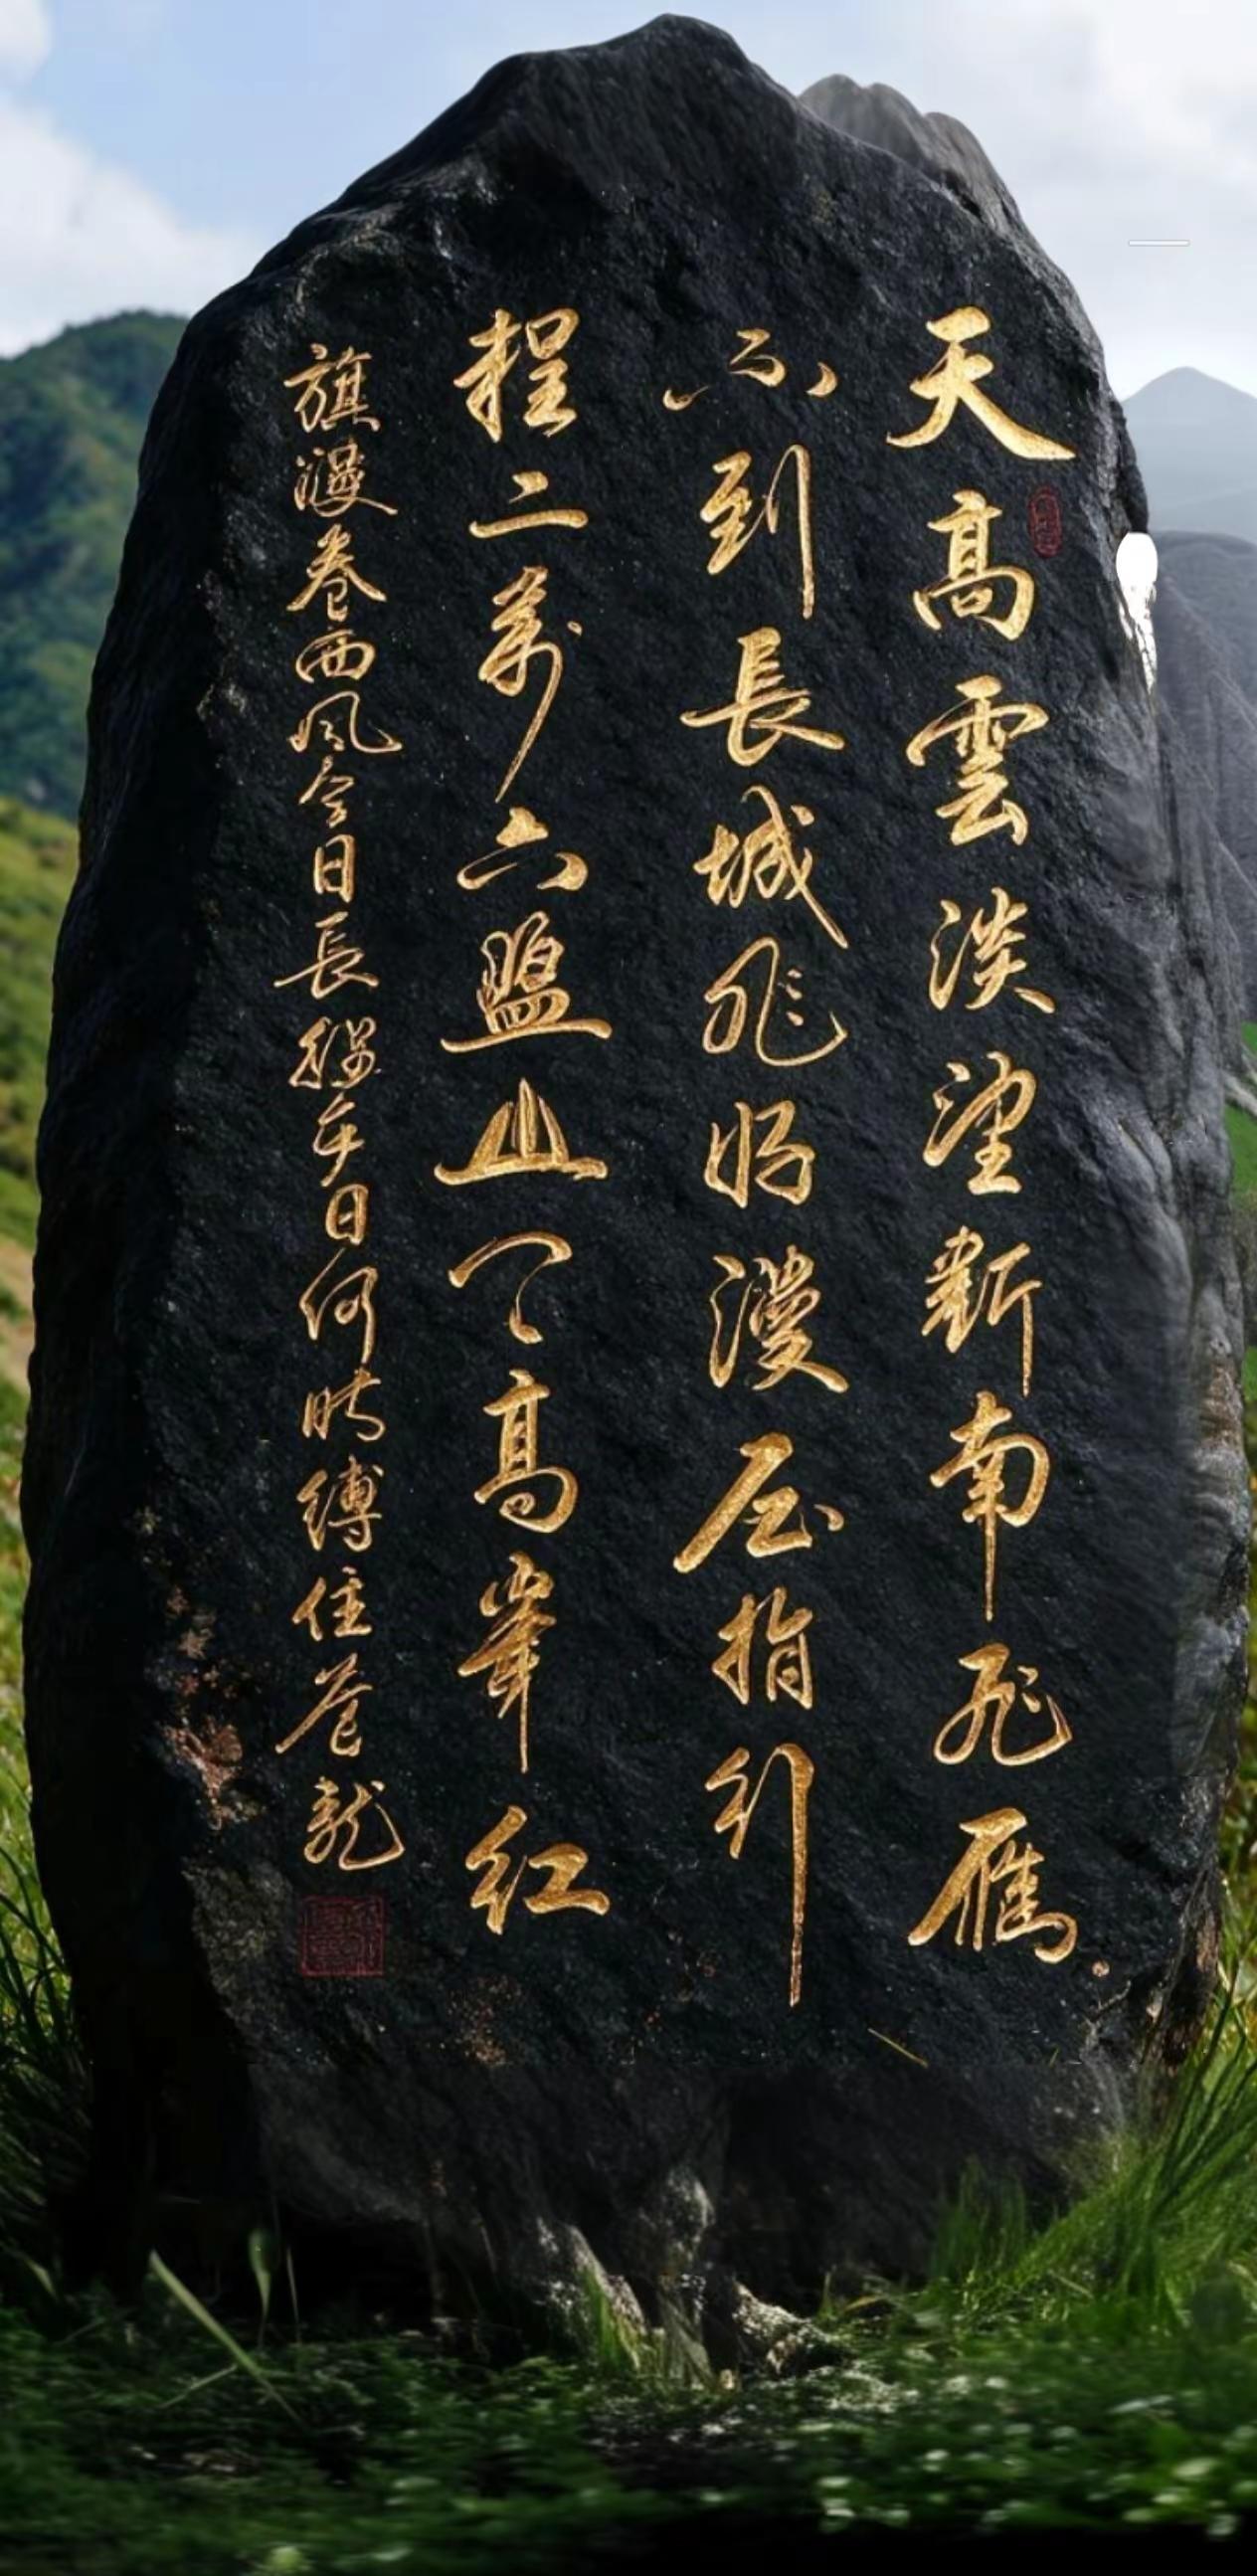 天高雲淡望斷南飛雁
不到長城非好漢屈指行
程二萬六盤山高峯紅
旗漫卷西風今日長纓手日何時縛住蒼龍